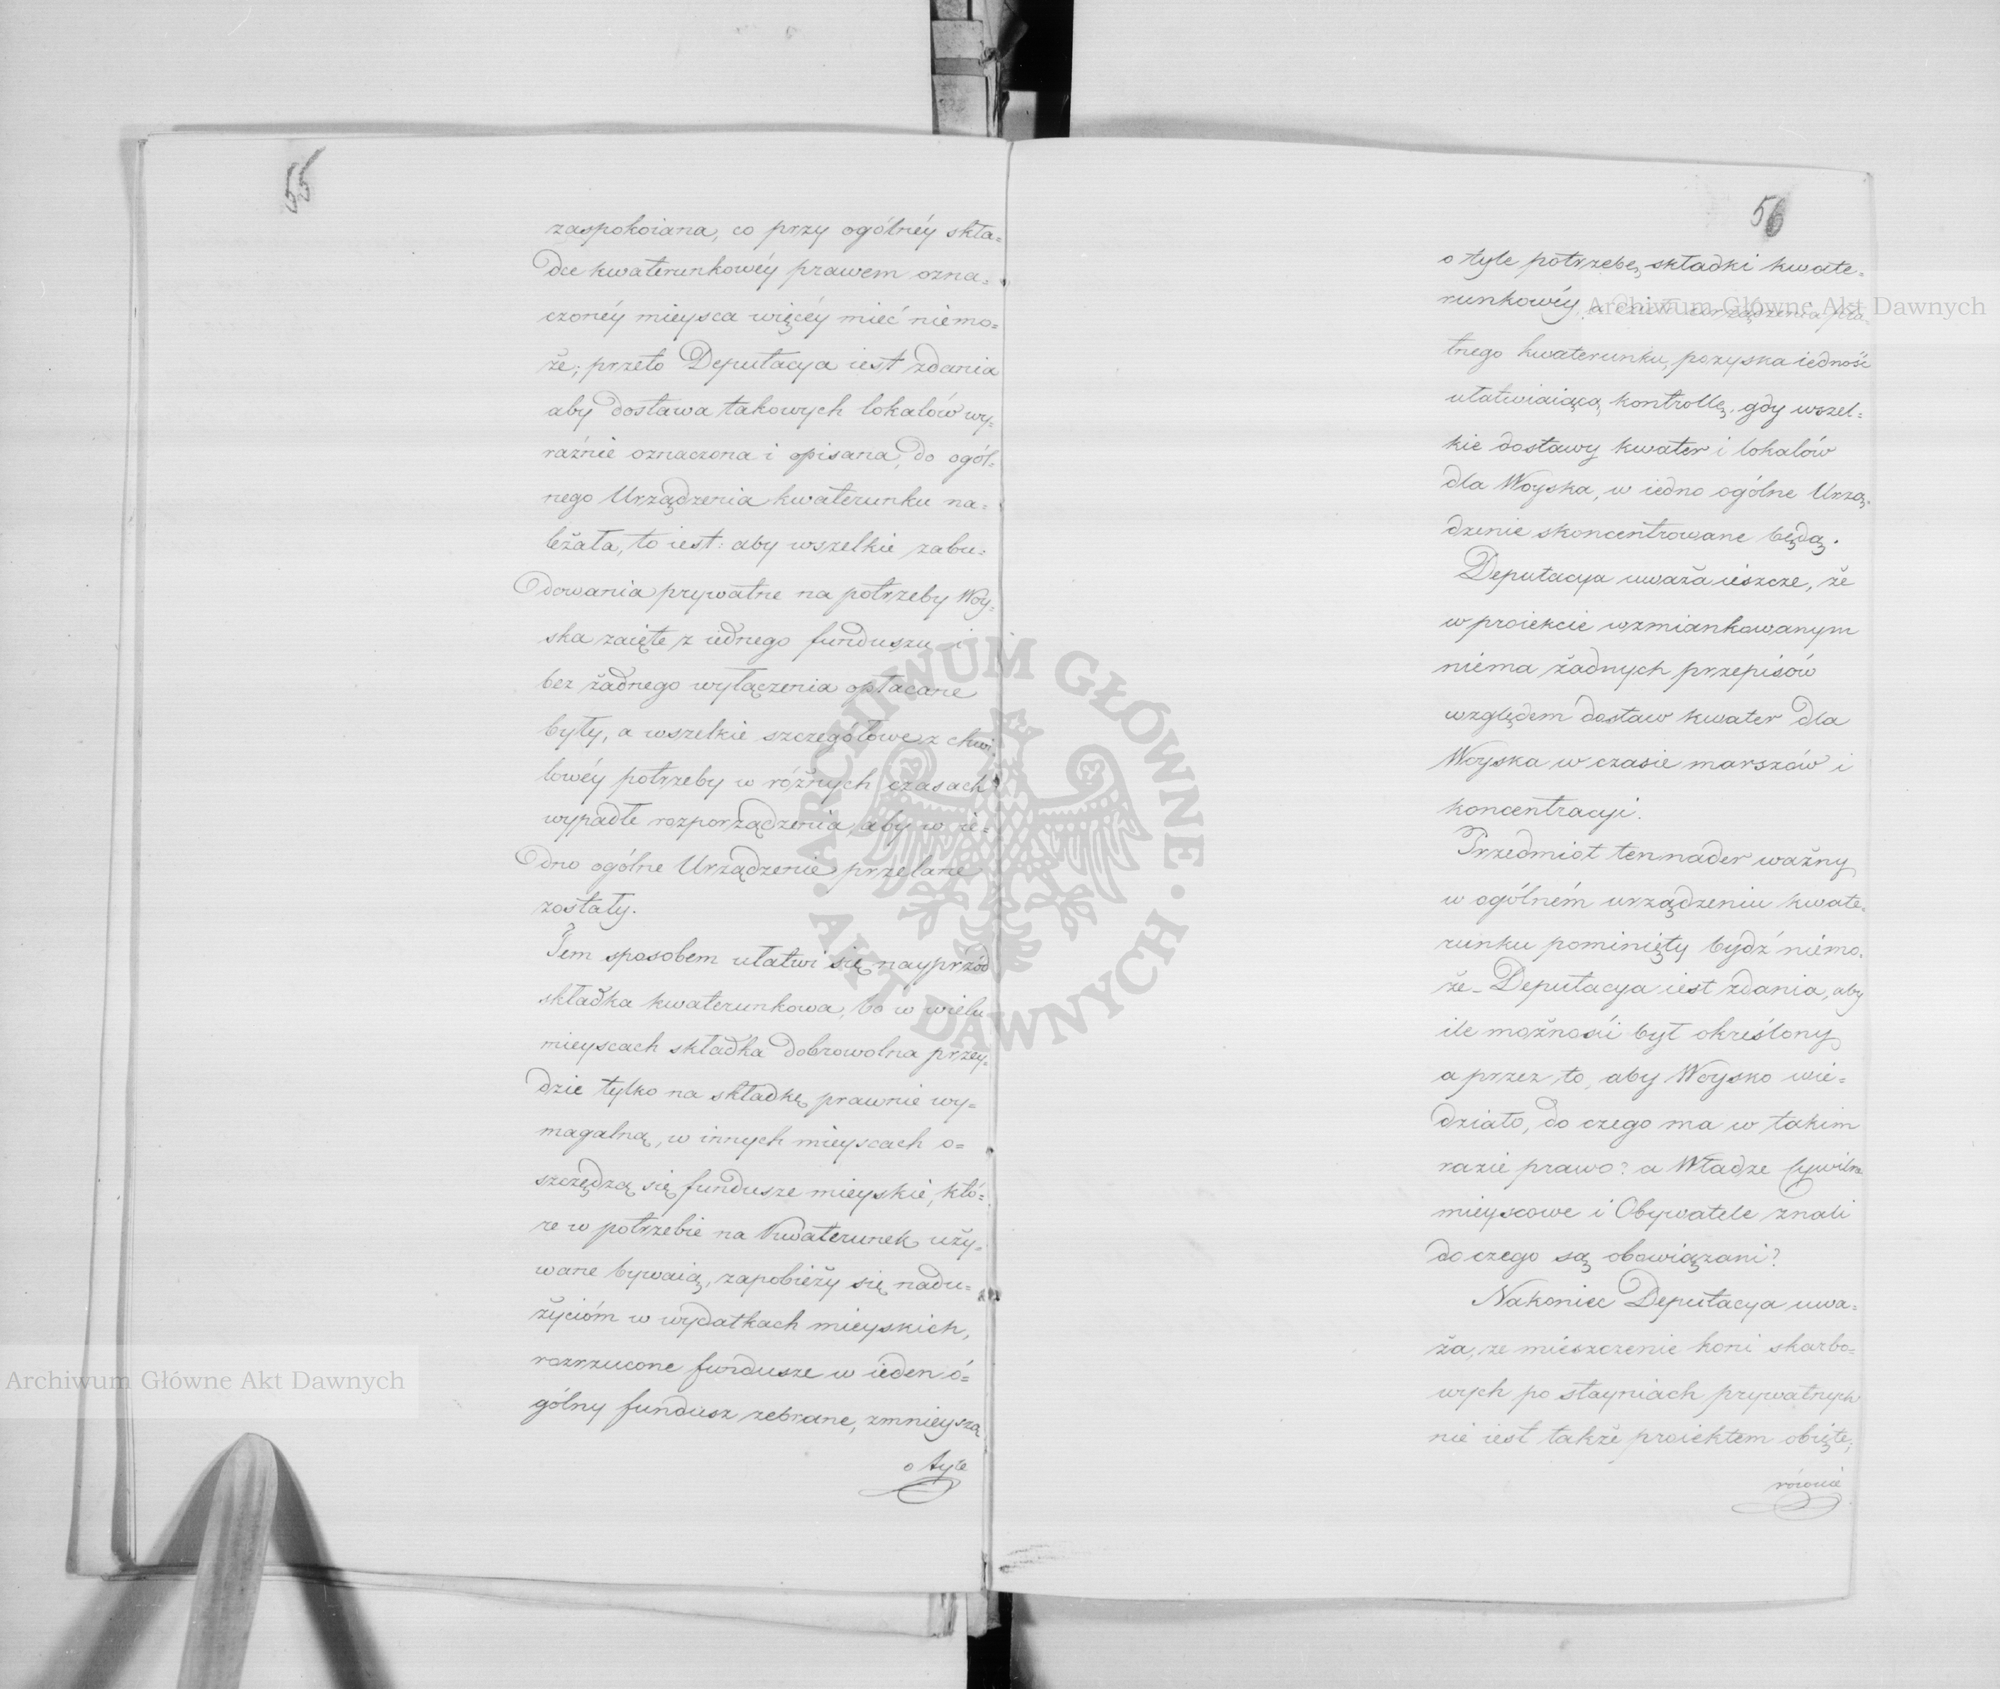 55
zaspokoiana, co przy ogólnéy skła=
dce kwaterunkowéy prawem ozna=
czonéy mieysca więcéy mieć niemo=
że; przeto Deputacya iest zdania
aby dostawa takowych lokalów wy=
raźnie oznaczona i opisana, do ogól=
nego Urządzenia kwaterunku na=
leżała, to iest: aby wszelkie zabu=
dowania prywatne na potrzeby Woy=
ska zaięte z iednego funduszu i
bez żadnego wyłączenia opłacane
były, a wszelkie szczegółowe z chwi=
lowéy potrzeby w różnych czasach
wypadłe rozporządzenia, aby w ie=
dno ogólne Urządzenie przelane
zostały.
Tem sposobem ułatwi się nayprzód
składka kwaterunkowa, bo w wielu
mieyscach składka dobrowolna przey=
dzie tylko na składkę prawnie wy=
magalną, w innych mieyscach o=
szczędzą się fundusze mieyskie, któ=
re w potrzebie na Kwaterunek uży=
wane bywaią, zapobieży się nadu=
życióm w wydatkach mieyskich,
rozrzucone fundusze w ieden o=
gólny fundusz zebrane, zmnieyszą
o tyle
56
o tyle potrzebę składki kwate=
runkowéy, a Urządzenia pła=
tnego kwaterunku, pozyska iedność
ułatwiaiącą kontrollę, gdy wszel=
kie dostawy kwater i lokalów
dla Woyska, w iedno ogólne Urzą=
dzenie skoncentrowane będą.
Deputacya uważa ieszcze, że
w proiekcie wzmiankowanym
niema żadnych przepisów
względem dostaw kwater dla
Woyska w czasie marszów i
koncentracyi.
Przedmiot ten nader ważny
w ogólném urządzeniu kwate=
runku pominięty bydź niemo=
że_ Deputacya iest zdania, aby
ile możności był określony
a przez to, aby Woysko wie=
działo, do czego ma w takim
razie prawo? a Władze Cywilne
mieyscowe i Obywatele znali
do czego są obowiązani?
Nakoniec Deputacya uwa=
ża, że mieszczenie koni skarbo=
wych po stayniach prywatnych
nie iest także proiektem obięte;
równie
Archiwum Główne Akt Dawnych
Archiwum Główne Akt Dawnych
ARCHIWUM GŁÓWNE · AKT DAWNYCH ·